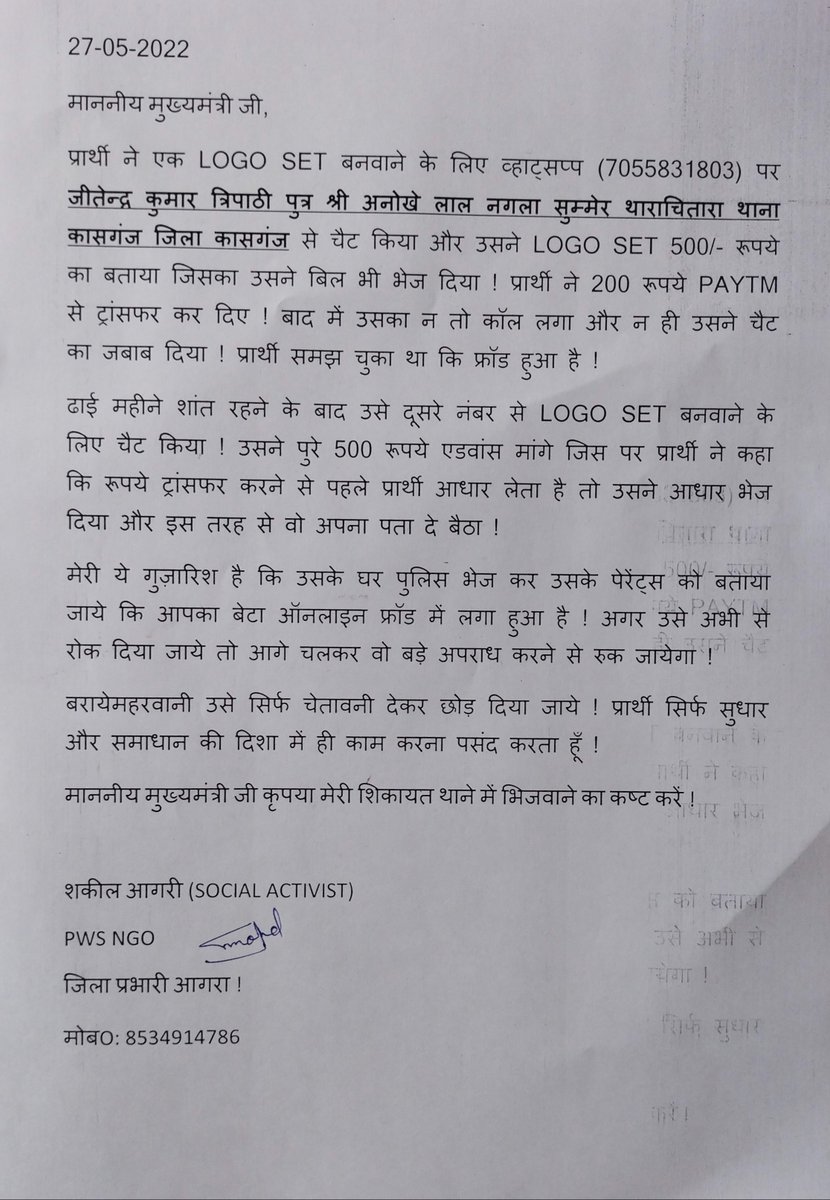 27-05-2022
माननीय मुख्यमंत्री जी,
प्रार्थी ने एक LOGO SET बनवाने के लिए व्हाट्सप्प (7055831803) पर
जीतेन्द्र कुमार त्रिपाठी पुत्र श्री अनोखे लाल नगला सुम्मेर थाराचितारा थाना
कासगंज जिला कासगंज से चैट किया और उसने LOGO SET 500/- रूपये
का बताया जिसका उसने बिल भी भेज दिया ! प्रार्थी ने 200 रूपये PAYTM
से ट्रांसफर कर दिए ! बाद में उसका न तो कॉल लगा और न ही उसने चैट
का जबाब दिया ! प्रार्थी समझ चुका था कि फ्रॉड हुआ है !
ढाई महीने शांत रहने के बाद उसे दूसरे नंबर से LOGO SET बनवाने के
लिए चैट किया ! उसने पुरे 500 रूपये एडवांस मांगे जिस पर प्रार्थी ने कहा
कि रूपये ट्रांसफर करने से पहले प्रार्थी आधार लेता है तो उसने आधार भेज
दिया और इस तरह से वो अपना पता दे बैठा !
मेरी ये गुज़ारिश है कि उसके घर पुलिस भेज कर उसके पेरेंट्स को बताया
जाये कि आपका बेटा ऑनलाइन फ्रॉड में लगा हुआ है ! अगर उसे अभी से
रोक दिया जाये तो आगे चलकर वो बड़े अपराध करने से रुक जायेगा !
बरायेमहरवानी उसे सिर्फ चेतावनी देकर छोड़ दिया जाये ! प्रार्थी सिर्फ सुधार
और समाधान की दिशा में ही काम करना पसंद करता हूँ !
माननीय मुख्यमंत्री जी कृपया मेरी शिकायत थाने में भिजवाने का कष्ट करें !
शकील आगरी (SOCIAL ACTIVIST)
PWS NGO
जिला प्रभारी आगरा !
मोबO: 8534914786